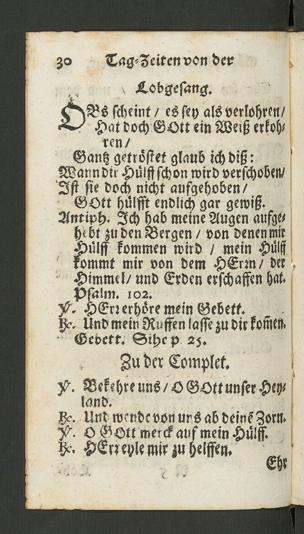 30 Tag-Zeiten von der
Lobgesang.
OBs scheint / es sey als verlohren /
Hat doch GOtt ein Weiß erkoh-
ren /
Gantz getröstet glaub ich diß:
Wann die Hülff schon wird verschoben /
Ist sie doch nicht aufgehoben /
GOtt hülfft endlich gar gewiß.
Antiph. Ich hab meine Augen aufge-
hebt zu den Bergen / von denen mir
Hülff kommen wird / mein Hülff
kommt mir von dem HErrn / der
Himmel / und Erden erschaffen hat.
Psalm. 102.
℣. HErr erhöre mein Gebett.
℟. Und mein Ruffen lasse zu dir kom̃en.
Gebett. Sihe p. 25.
Zu der Complet.
℣. Bekehre uns / O GOtt unser Hey-
land.
℟. Und wende von uns ab deinē Zorn.
℣. O GOtt merck auf mein Hülff.
℟. HErr eyle mir zu helffen.
Ehr